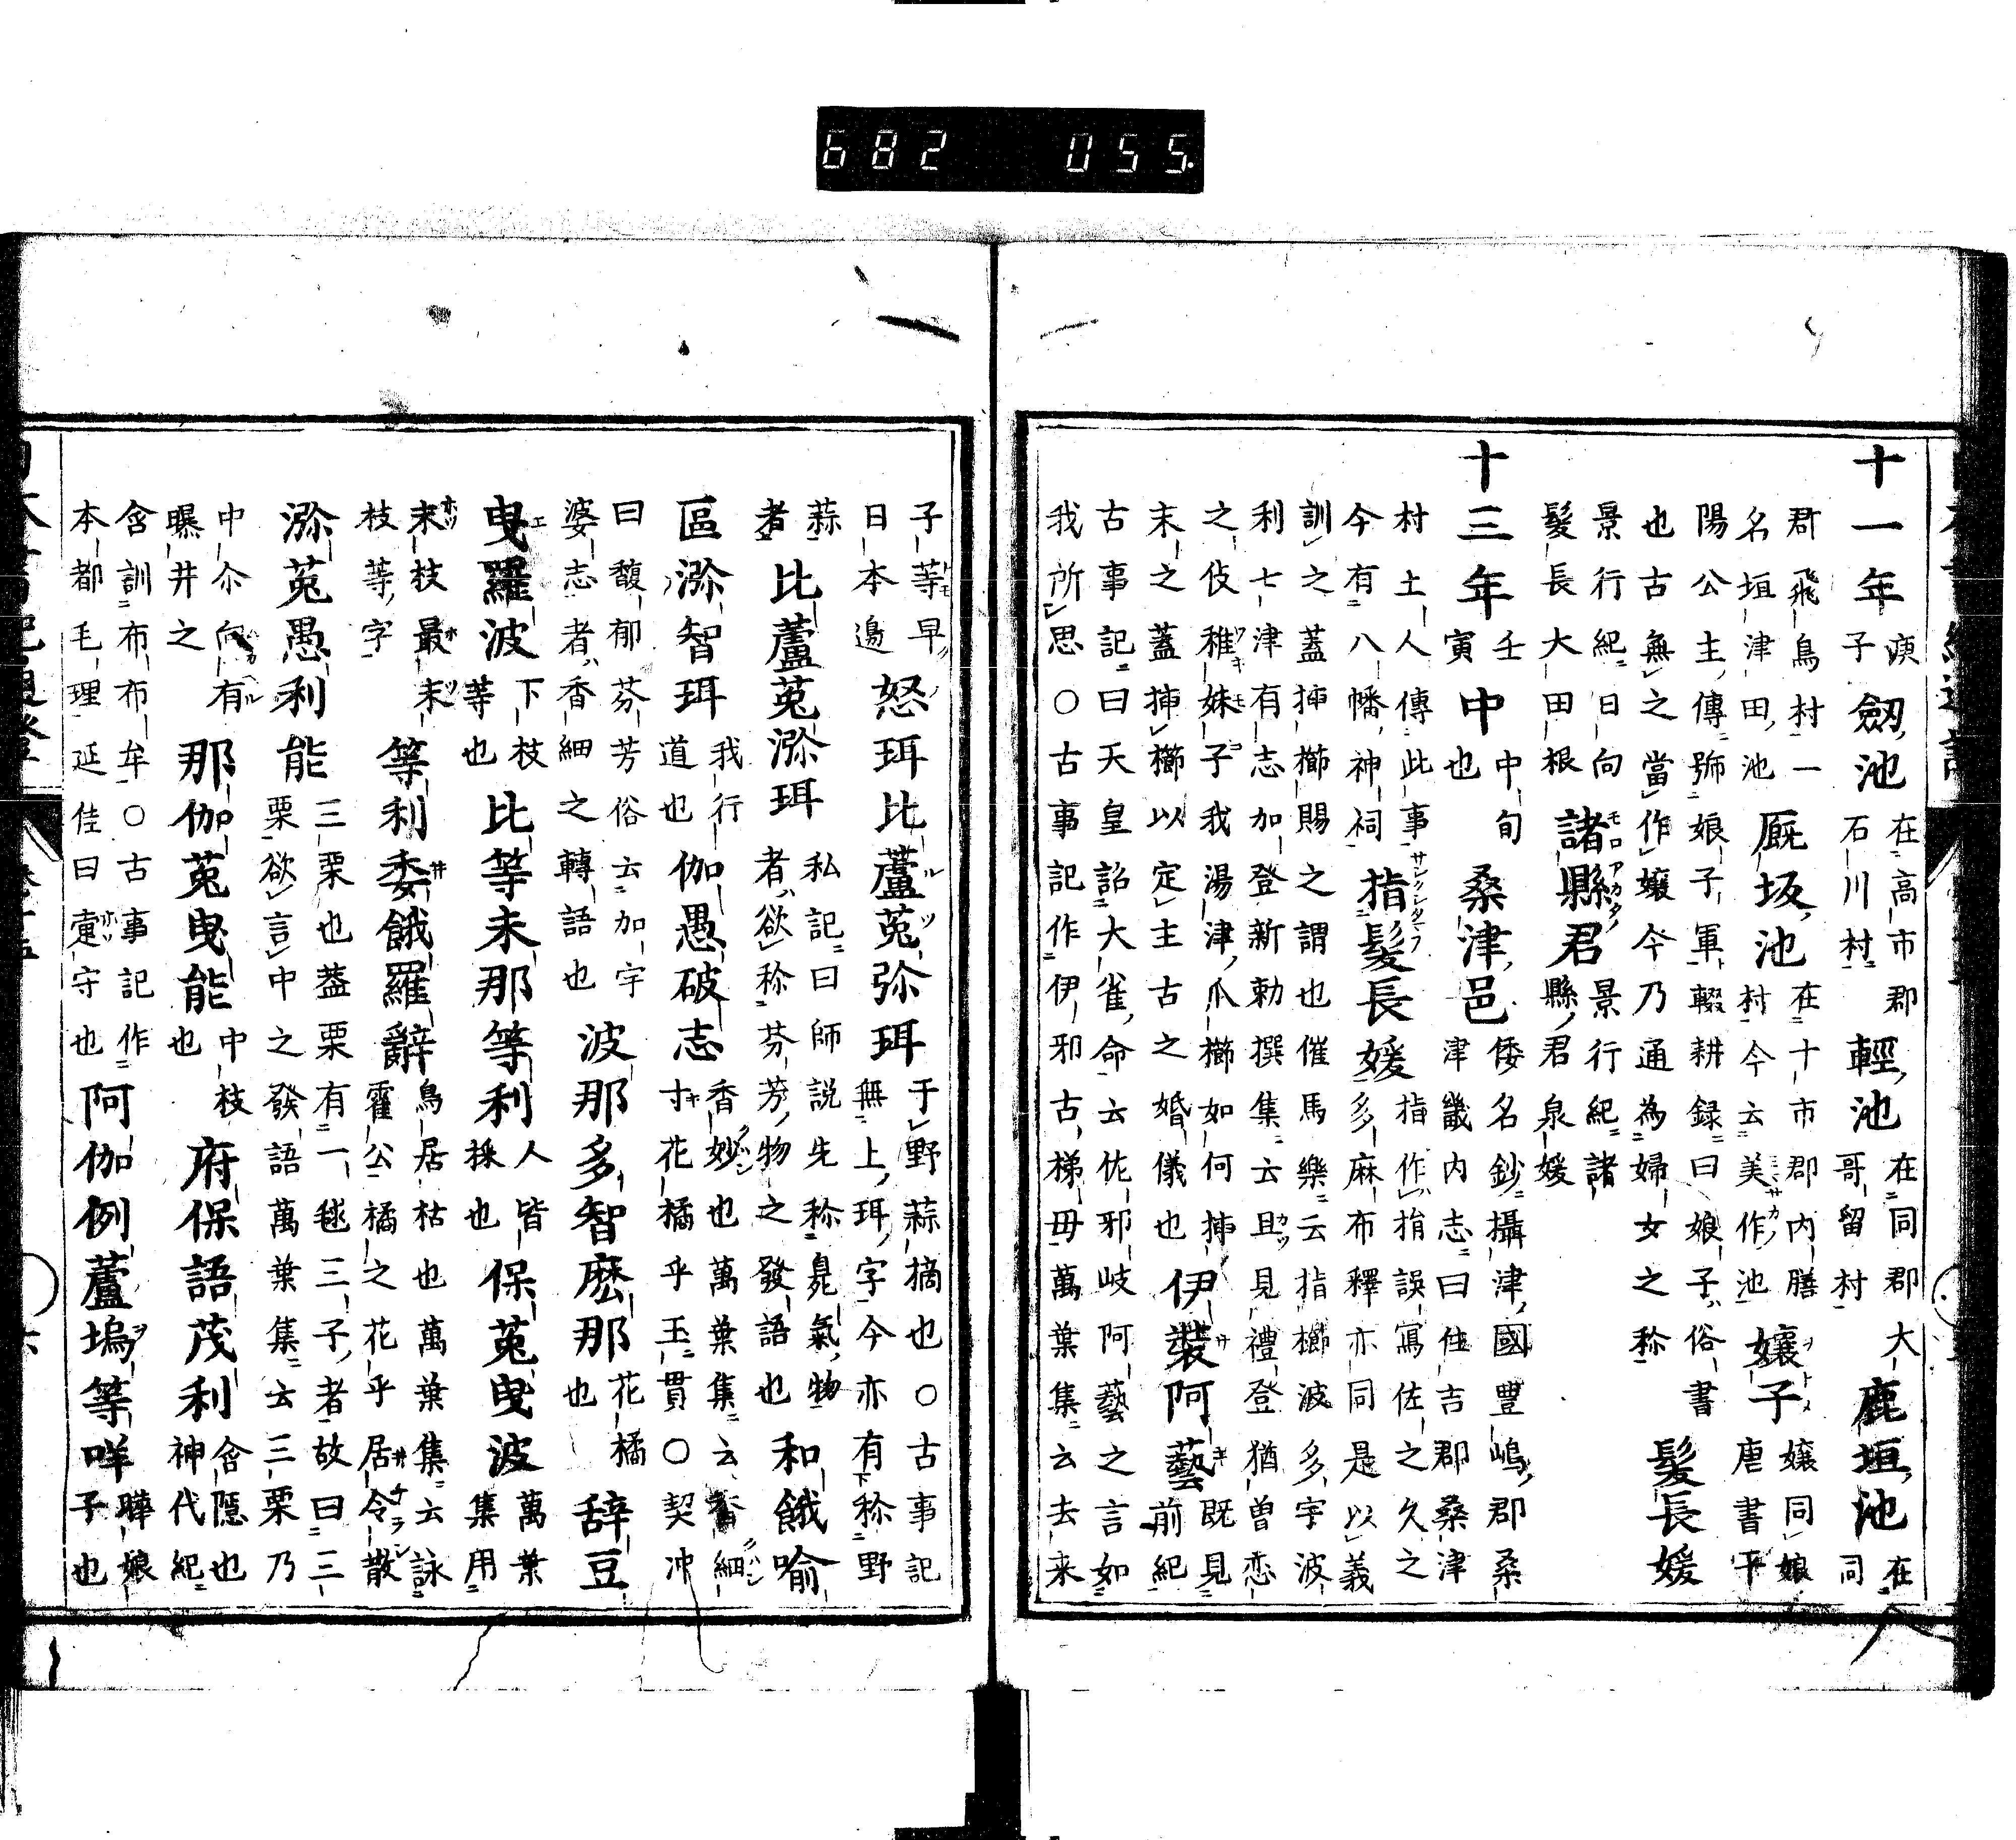 十一年 庚子 劔池 在高市郡石川村 輕池 在同郡大哥留村 鹿垣池 在同
郡飛鳥村一名垣津田池 厩坂池 在十市郡内膳村今云美作池 孃子 孃同娘唐書平
陽公主傳号娘子軍輟耕録曰娘子俗書也古無之當作孃今乃通為婦女之称 髮長媛
景行紀日向髮長大田根 諸縣君 景行紀諸縣君泉媛
十三年 壬寅 中 中旬也 桑津邑 倭名鈔攝津國豊嶋郡桑津畿内志曰住吉郡桑津
村土人傳此事今有八幡神祠 指髮長媛 指作㫖誤寫佐之久之多麻布釋亦同是以義
訓之蓋挿櫛賜之謂也催馬樂云指櫛波多宇波利七津有志加登新勅撰集云且見禮登猶曾恋
之伎稚妹子我湯津爪櫛如何挿末之蓋挿櫛以定主古之婚儀也 伊裝阿藝 既見前紀
古事記曰天皇詔大雀命云佐邪岐阿藝之言如我所思○古事記作伊邪古梯毋萬葉集云去来
子等早日本邊 怒珥比蘆菟弥珥 于野蒜摘也○古事記無上珥字今亦有下称野
蒜者 比蘆菟瀰珥 私記曰師説先称臭氣物者欲称芬芳物之發語也 和餓喻
區瀰智珥 我行道也 伽愚破志 香妙也萬葉集云香細寸花橘乎玉貫○契冲
曰馥郁芬芳俗云加宇婆志者香細之轉語也 波那多智麽那 花橘也 辞豆
曳羅波 下枝等也 比等未那等利 人皆採也 保菟曳波 萬葉集用
末枝最末枝等字 等利委餓羅辭 鳥居枯也萬葉集云詠霍公橘之花乎居令散
瀰菟愚利能 三栗也盖栗有一毬三子者故曰三栗欲言中之發語萬葉集云三栗乃
中尒向有曝井之 那伽菟曳能 中枝也 府保語茂利 含隠也神代紀
含訓布布牟○古事記作本都毛理延佳曰守也 阿伽例蘆塢等咩 曄娘子也
682 055